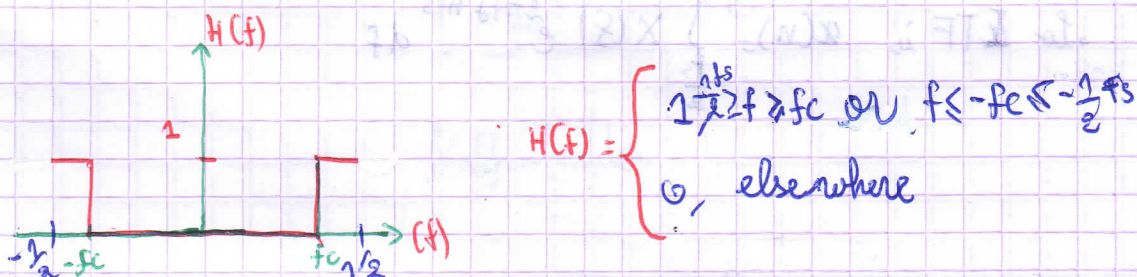 H(f)
1
-1/2 -fc fc 1/2 (f)
H(f) = 
1, 1/2 fs ≥ f ≥ fc or f ≤ -fc ≤ -1/2 fs
0, elsewhere